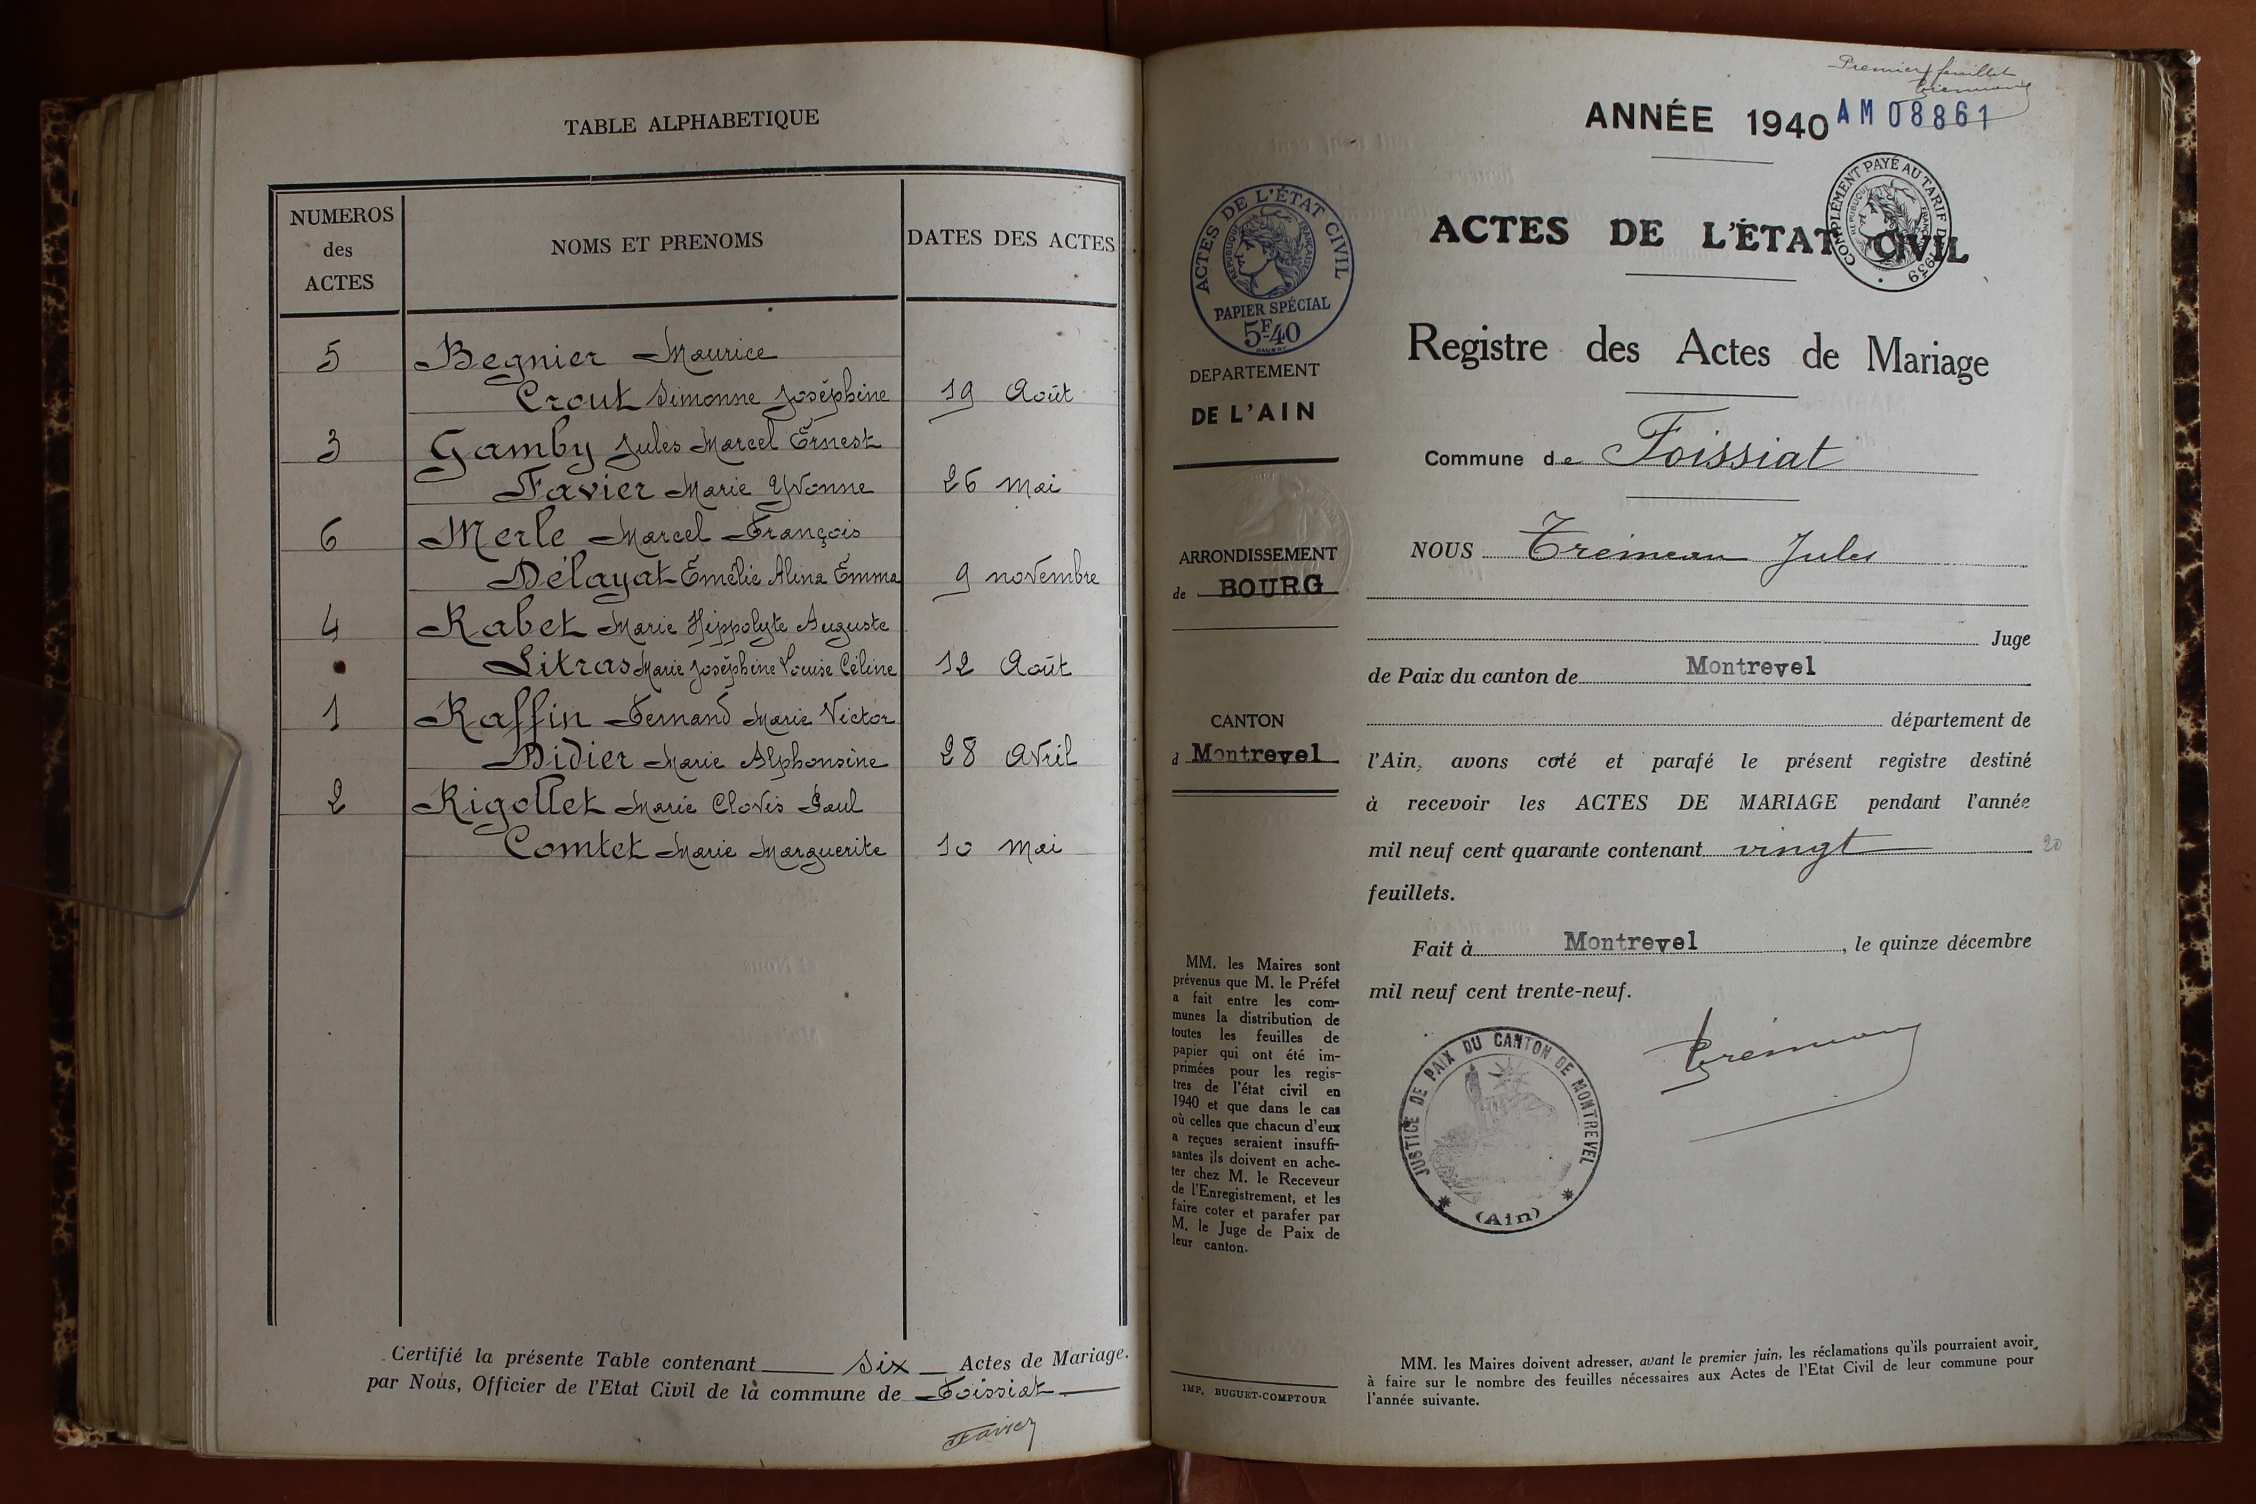 TABLE ALPHABETIQUE
NUMEROS
des
ACTES
NOMS ET PRENOMS
DATES DES ACTES
5 Begnier Maurice
Crout Simonne Joséphine 19 Août
3 Gamby Jules Marcel Ernest
Favier Marie Yvonne 26 mai
6 Merle Marcel François
Délayat Emélie Alina Emma 9 novembre
4 Rabet Marie Hippolyte Auguste
Litras Marie Joséphine Louise Céline 12 Août
1 Raffin Fernand Marie Victor
Didier Marie Alphonsine 28 Avril
2 Rigollet Marie Clovis Paul
Comtet Marie Marguerite 10 mai
Certifié la présente Table contenant six Actes de Mariage.
par Nous, Officier de l'Etat Civil de la commune de Foissiat
Premier feuillet
ANNÉE 1940
AM 08861
COMPLÉMENT PAYÉ AU TARIF DE 1939
RÉPUBLIQUE FRANÇAISE
ACTES DE L'ÉTAT CIVIL
Registre des Actes de Mariage
Commune de Foissiat
NOUS Trémeau Jules
Juge
de Paix du canton de Montrevel
département de
l'Ain, avons coté et parafé le présent registre destiné
à recevoir les ACTES DE MARIAGE pendant l'année
mil neuf cent quarante contenant vingt 20
feuillets.
Fait à Montrevel, le quinze décembre
mil neuf cent trente-neuf.
JUSTICE DE PAIX DU CANTON DE MONTREVEL
(Ain)
MM. les Maires doivent adresser, avant le premier juin, les réclamations qu'ils pourraient avoir
à faire sur le nombre des feuilles nécessaires aux Actes de l'Etat Civil de leur commune pour
l'année suivante.
ACTES DE L'ÉTAT CIVIL
RÉPUBLIQUE FRANÇAISE
PAPIER SPÉCIAL
5F-40
DEPARTEMENT
DE L'AIN
ARRONDISSEMENT
de BOURG
CANTON
d Montrevel
MM. les Maires sont
prévenus que M. le Préfet
a fait entre les com-
munes la distribution de
toutes les feuilles de
papier qui ont été im-
primées pour les regis-
tres de l'état civil en
1940 et que dans le cas
où celles que chacun d'eux
a reçues seraient insuffi-
santes ils doivent en ache-
ter chez M. le Receveur
de l'Enregistrement, et les
faire coter et parafer par
M. le Juge de Paix de
leur canton.
IMP. BUGUET-COMPTOUR